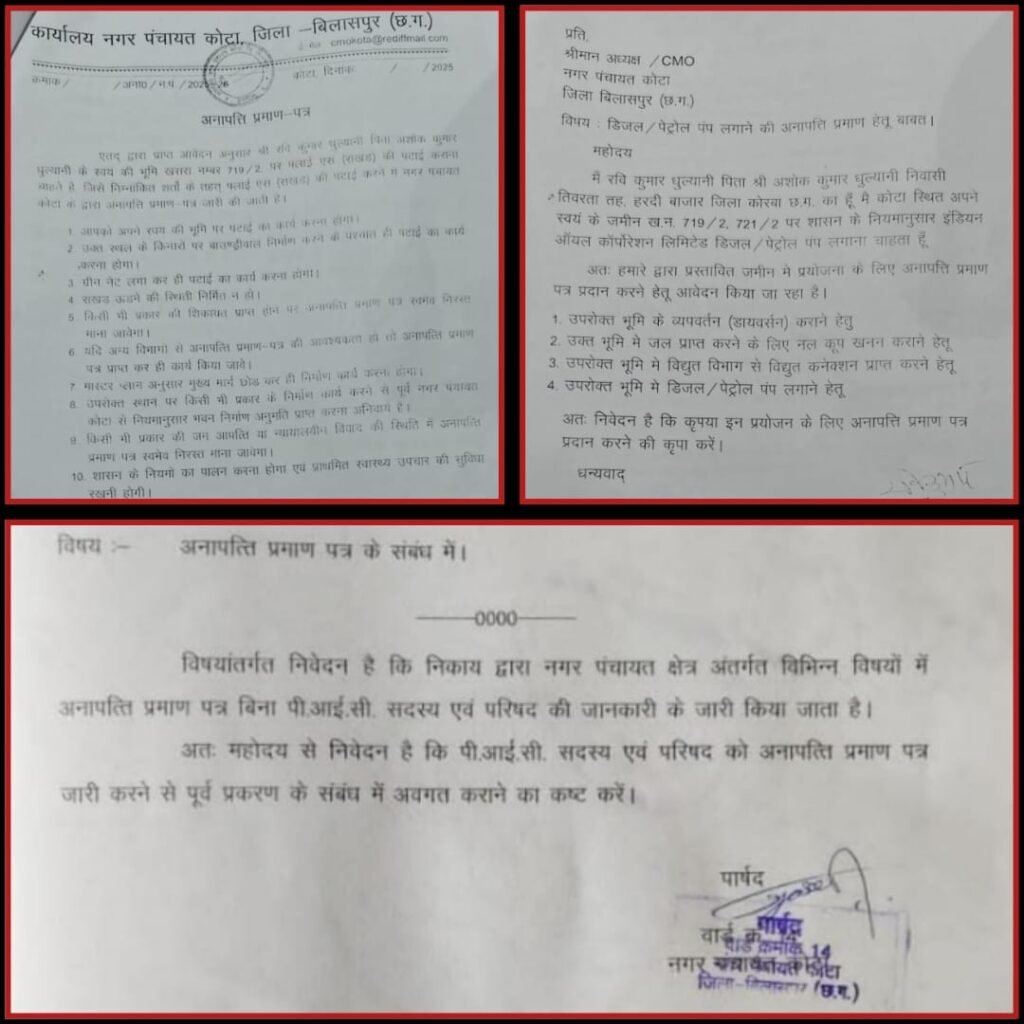 कार्यालय नगर पंचायत कोटा, जिला –बिलासपुर (छ.ग.)
cmokota@rediffmail.com
क्रमांक / /अना0 / न.पं. / 2025-26 कोटा, दिनांक: / /2025
अनापत्ति प्रमाण–पत्र
एतद द्वारा प्राप्त आवेदन अनुसार श्री रवि कुमार धुल्यानी पिता अशोक कुमार
धुल्यानी के स्वयं की भूमि खसरा नम्बर 719/2. पर फ्लाई एस (राखड) की पटाई कराना
चाहते है. जिसे निम्नांकित शर्तो के तहत् फ्लाई एस (राखड) की पटाई करने में नगर पंचायत
कोटा के द्वारा अनापत्ति प्रमाण–पत्र जारी की जाती है।
1. आपको अपने स्वयं की भूमि पर पटाई का कार्य करना होगा।
2. उक्त स्थल के किनारों पर बाउण्ड्रीवाल निर्माण करने के पश्चात ही पटाई का कार्य
करना होगा।
3 ग्रीन नेट लगा कर ही पटाई का कार्य करना होगा।
4 राखड ऊडने की स्थिती निर्मित न हो।
5. किसी भी प्रकार की शिकायत प्राप्त होने पर अनापत्ति प्रमाण पत्र स्वमेव निरस्त
माना जावेगा।
6 यदि अन्य विभागों से अनापत्ति प्रमाण–पत्र की आवश्यकता हो तो अनापत्ति प्रमाण
पत्र प्राप्त कर ही कार्य किया जावे।
7 मास्टर प्लान अनुसार मुख्य मार्ग छोड कर ही निर्माण कार्य करना होगा।
8. उपरोक्त स्थान पर किसी भी प्रकार के निर्माण कार्य करने से पूर्व नगर पंचायत
कोटा से नियमानुसार भवन निर्माण अनुमति प्राप्त करना अनिवार्य है।
9. किसी भी प्रकार की जन आपत्ति या न्यायालयीन विवाद की स्थिति में अनापत्ति
प्रमाण पत्र स्वमेव निरस्त माना जावेगा।
10. शासन के नियमों का पालन करना होगा एवं प्राथमित स्वास्थ्य उपचार की सुविधा
रखनी होगी।
प्रति,
श्रीमान अध्यक्ष /CMO
नगर पंचायत कोटा
जिला बिलासपुर (छ.ग.)
विषय : डिजल/पेट्रोल पंप लगाने की अनापत्ति प्रमाण हेतू बाबत।
महोदय
मैं रवि कुमार धुल्यानी पिता श्री अशोक कुमार धुल्यानी निवासी
तिवरता तह. हरदी बाजार जिला कोरबा छ.ग. का हूँ मै कोटा स्थित अपने
स्वयं के जमीन ख.न. 719/2, 721/2 पर शासन के नियमानुसार इंडियन
ऑयल कॉर्पोरेशन लिमिटेड डिजल/पेट्रोल पंप लगाना चाहता हूँ
अतः हमारे द्वारा प्रस्तावित जमीन मे प्रयोजना के लिए अनापत्ति प्रमाण
पत्र प्रदान करने हेतू आवेदन किया जा रहा है।
1. उपरोक्त भूमि के व्यपवर्तन (डायवर्सन) कराने हेतु
2. उक्त भूमि मे जल प्राप्त करने के लिए नल कूप खनन कराने हेतू
3. उपरोक्त भूमि में विद्युत विभाग से विद्युत कनेक्शन प्राप्त करने हेतू
4. उपरोक्त भूमि मे डिजल/पेट्रोल पंप लगाने हेतू
अतः निवेदन है कि कृपया इन प्रयोजन के लिए अनापत्ति प्रमाण पत्र
प्रदान करने की कृपा करें।
धन्यवाद्
विषय :– अनापत्ति प्रमाण पत्र के संबंध में।
——0000——
विषयांतर्गत निवेदन है कि निकाय द्वारा नगर पंचायत क्षेत्र अंतर्गत विभिन्न विषयों में
अनापत्ति प्रमाण पत्र बिना पी.आई.सी. सदस्य एवं परिषद की जानकारी के जारी किया जाता है।
अतः महोदय से निवेदन है कि पी.आई.सी. सदस्य एवं परिषद को अनापत्ति प्रमाण पत्र
जारी करने से पूर्व प्रकरण के संबंध में अवगत कराने का कष्ट करें।
पार्षद
पार्षद
वार्ड क्र
वार्ड क्रमांक 14
नगर पंचायत कोटा
जिला–बिलासपुर (छ.ग.)